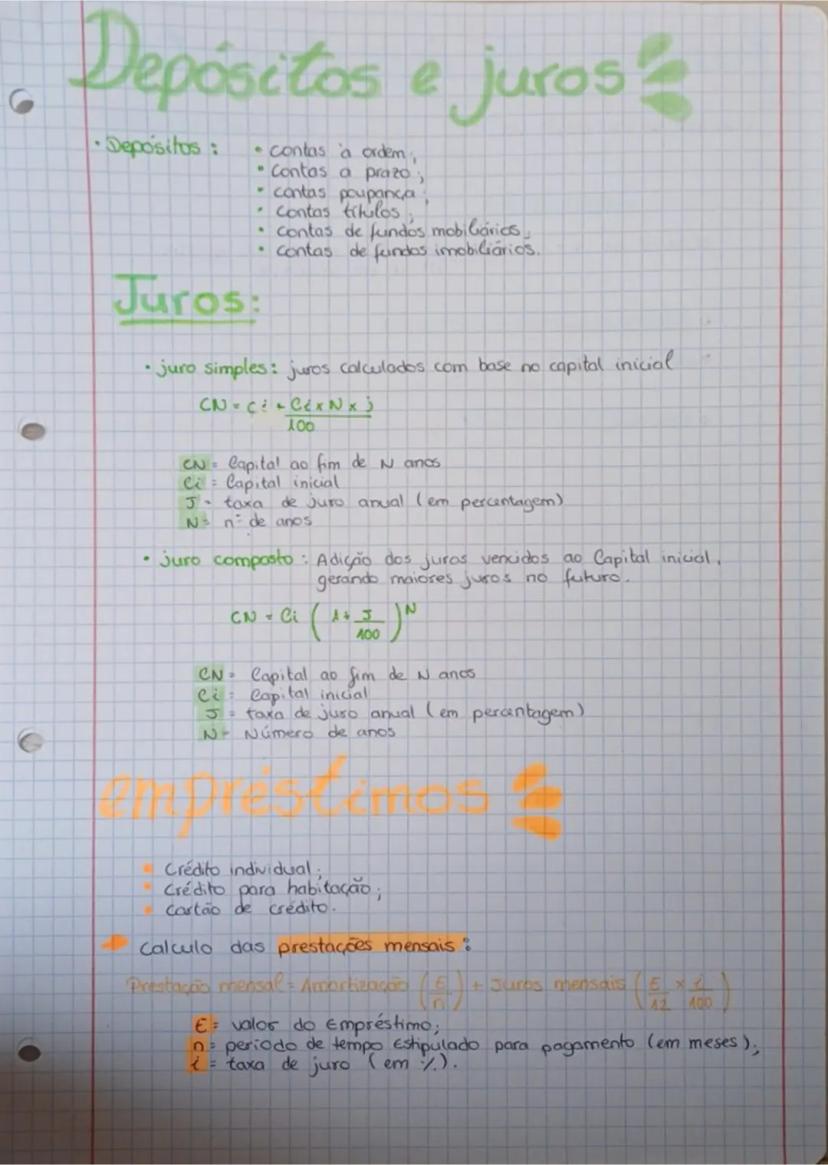 Depósitos e juros
• Depósitos : • contas à ordem;
• contas a prazo;
• contas poupança;
• contas títulos;
• contas de fundos mobiliários;
• contas de fundos imobiliários.
Juros:
• juro simples: juros calculados com base no capital inicial
CN = Ci + Ci x N x j
100
CN = Capital ao fim de N anos
Ci = Capital inicial
J = taxa de juro anual (em percentagem)
N = nº de anos
• juro composto : Adição dos juros vencidos ao Capital inicial,
gerando maiores juros no futuro.
CN = Ci ( 1 + J/100 )^N
CN = Capital ao fim de N anos
Ci = Capital inicial
J = taxa de juro anual (em percentagem)
N = Número de anos
empréstimos
• Crédito individual;
• Crédito para habitação;
• Cartão de crédito.
→ Calculo das prestações mensais :
Prestação mensal = Amortização ( E/n ) + Juros mensais ( E/12 x i/100 )
E = valor do Empréstimo;
n = periodo de tempo Estipulado para pagamento (em meses);
i = taxa de juro (em %).